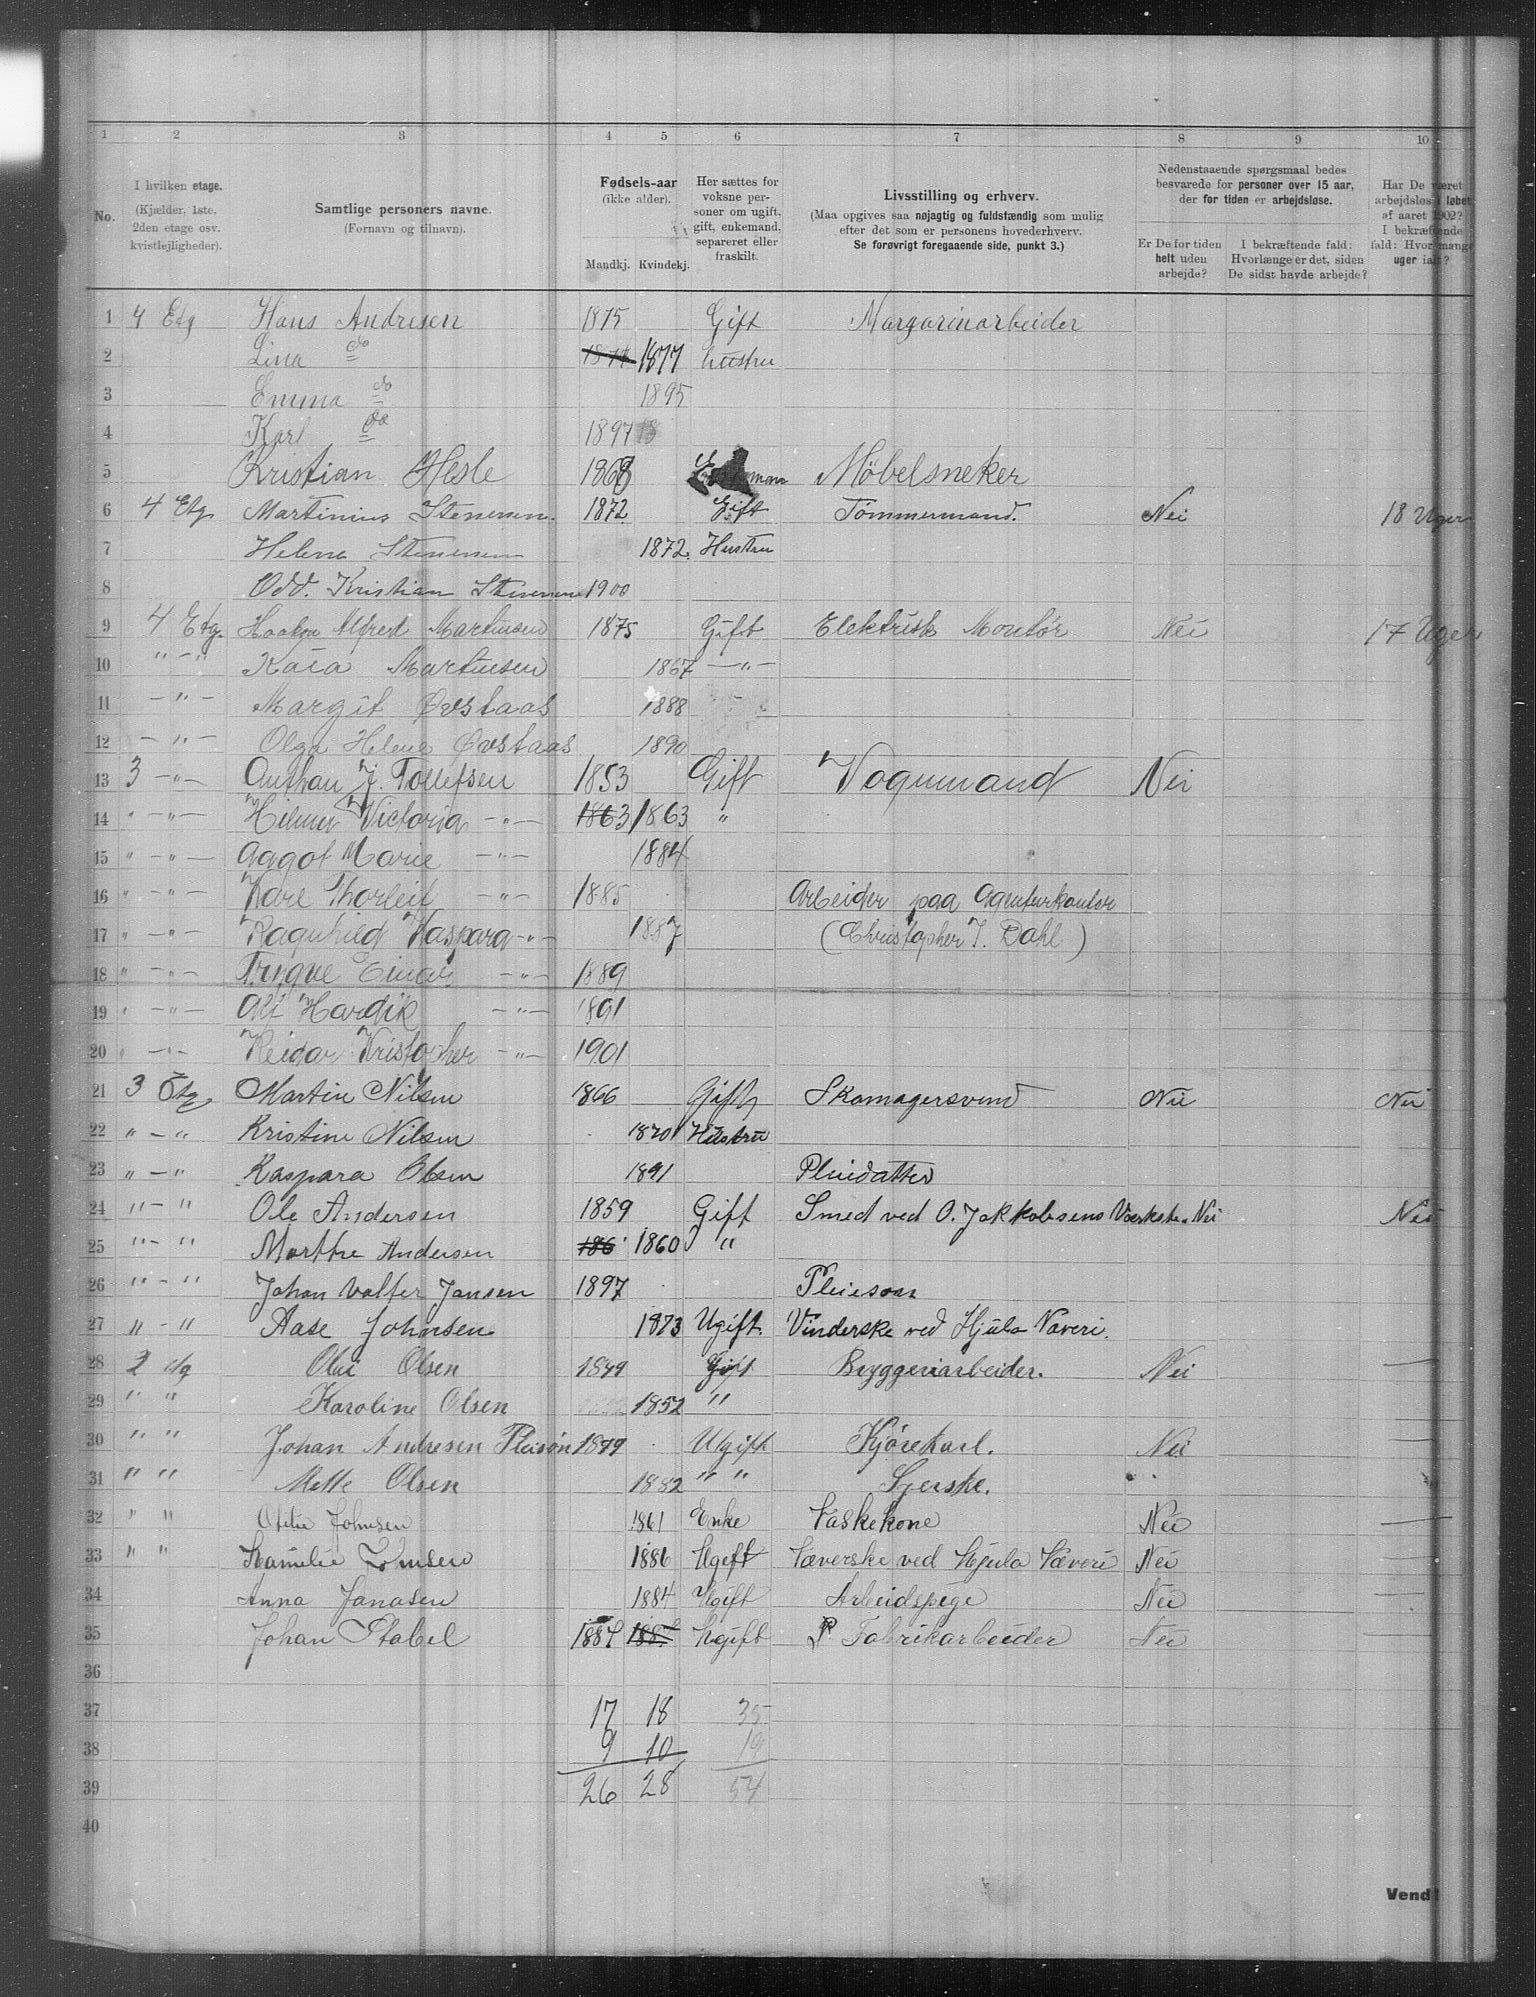 1 2 3 4 5 6 7 8 9 10
No.
I hvilken etage.
(Kjælder, 1ste, 2den etage osv. kvistlejligheder).
Samtlige personers navne.
(Fornavn og tilnavn).
Fødsels-aar
(ikke alder).
Mandkj. Kvindekj.
Her sættes for voksne personer om ugift, gift, enkemand, separeret eller fraskilt.
Livsstilling og erhverv.
(Maa opgives saa nøjagtig og fuldstændig som mulig efter det som er personens hovederhverv.
Se forøvrigt foregaaende side, punkt 3.)
Nedenstaaende spørgsmaal bedes besvarede for personer over 15 aar, der for tiden er arbejdsløse.
Er De for tiden helt uden arbejde?
I bekræftende fald: Hvorlænge er det, siden De sidst havde arbejde?
Har De været arbejdsløs i løbet af aaret 1902? I bekræftende fald: Hvor mange uger ialt?
1 4 Etg Hans Andresen 1875 Gift Margarinarbeider
2 Lina do 1877 hustru
3 Emma do 1895
4 Karl do 1897
5 Kristian Hesle 1868 Møbelsneker
6 4 Etg Martinius Stenersen. 1872 Gift Tømmermand. Nei 18 Uger
7 Helena Stenersen 1872. Hustru
8 Odd. Kristian Stenersen 1900
9 4 Etg. Haakon Alfred Martinsen 1875 Gift Elektrisk Montør Nei 17 Uger
10 " - " Kaia Martinsen 1867 - " -
11 - " - Margit Øvstaas 1888
12 - " - Olga Helene Øvstaas 1890
13 3 - " - J. Tollefsen 1853 Gift Vognmand Nei
14 " - " - Victoria - " - 1863 1863 "
15 " - " - Aagot Marie - " - 1884
16 " - " - Kare Thorleif - " - 1885 Arbeider paa Agenturkontor
17 " - " - Ragnhild Kaspara - " - 1887 (Christopher J. Dahl)
18 " - " - Trygve Einar - " - 1889
19 " - " - Hardik - " - 1891
20 " - " - Reidar Kristopher - " - 1901
21 3 Etg Martin Nilsen 1866 Gift Skomagersvend Nei Nei
22 " - " Kristine Nilsen 1870 Hustru
23 " - " Kaspara Olsen 1891 Pleiedatter
24 " - " Ole Andersen 1859 Gift Smed ved O. Jakkobsens Værkste. Nei Nei
25 " - " Marthe Andersen 186 1860 "
26 " - " Johan Valfer Jansen 1897 Pleiesøn
27 " - " Aase Johnsen 1873 Ugift. Vinderske ved Hjula Væveri.
28 2 etg Olsen 1849 Gift Bryggeriarbeider. Nei —
29 " " Karoline Olsen 1852 "
30 " " Johan Andresen Pleisøn 1879 Ugift Kjørekarl. Nei —
31 " " Mette Olsen 1882 " " Syerske.
32 " " Johnsen 1861 Enke Vaskekone Nei —
33 " " Kamilie Johnsen 1886 Ugift Væverske ved Hjula Væveri Nei —
34 Anna Janasen 1884 Ugift Arbeidspige Nei —
35 Johan Stabel 1884 Ugift Fabrikarbeider Nei —
36
37 17 18 35
38 9 10 19
39 26 28 54
40
Vend!